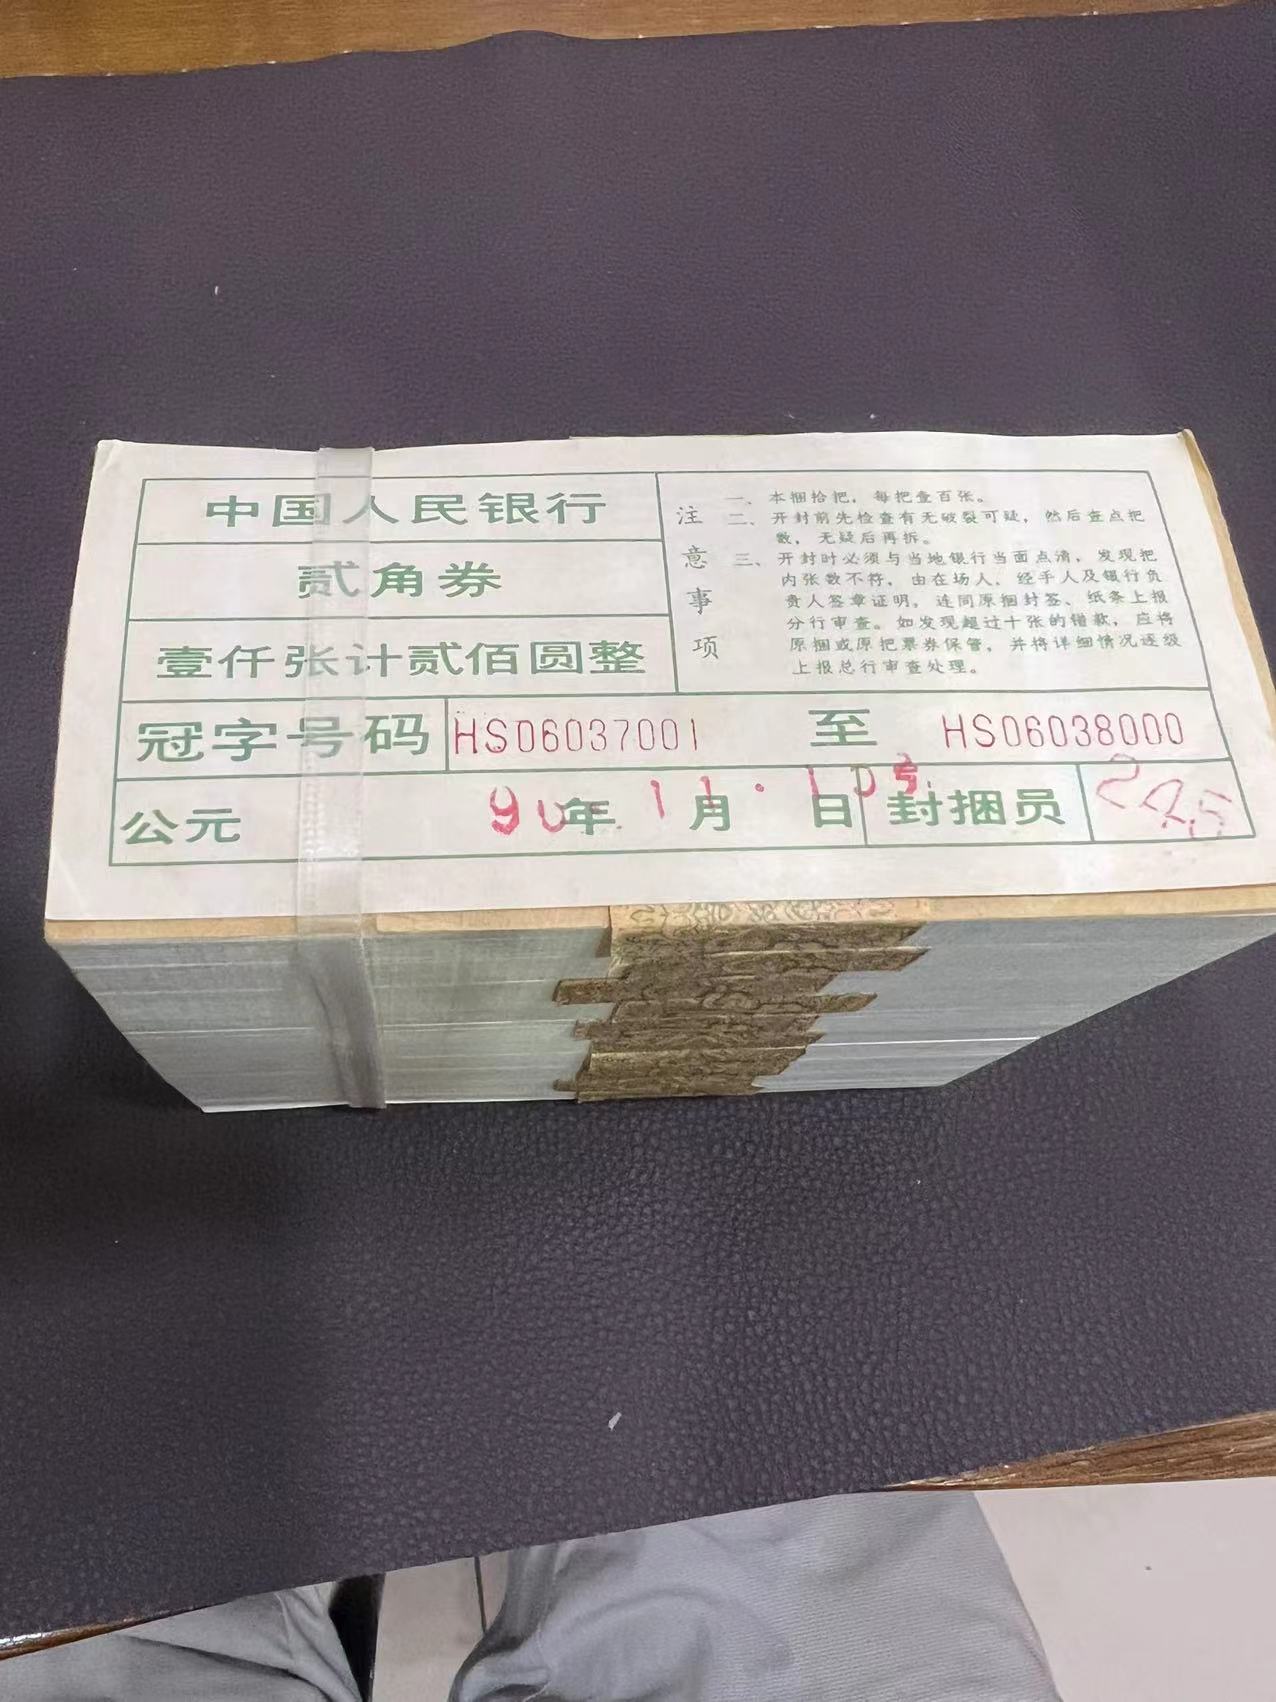 中国人民银行
贰角券
壹仟张计贰佰圆整
注意事项
一、本捆拾把，每把壹百张。
二、开封前先检查有无破裂可疑，然后查点把
数，无疑后再拆。
三、开封时必须与当地银行当面点清，发现把
内张数不符，由在场人，经手人及银行负
责人签章证明，连同原捆封签、纸条上报
分行审查。如发现超过十张的错款，应将
原捆或原把票券保管，并将详细情况逐级
上报总行审查处理。
冠字号码 HS06037001 至 HS06038000
公元 90年 11月 10日 封捆员